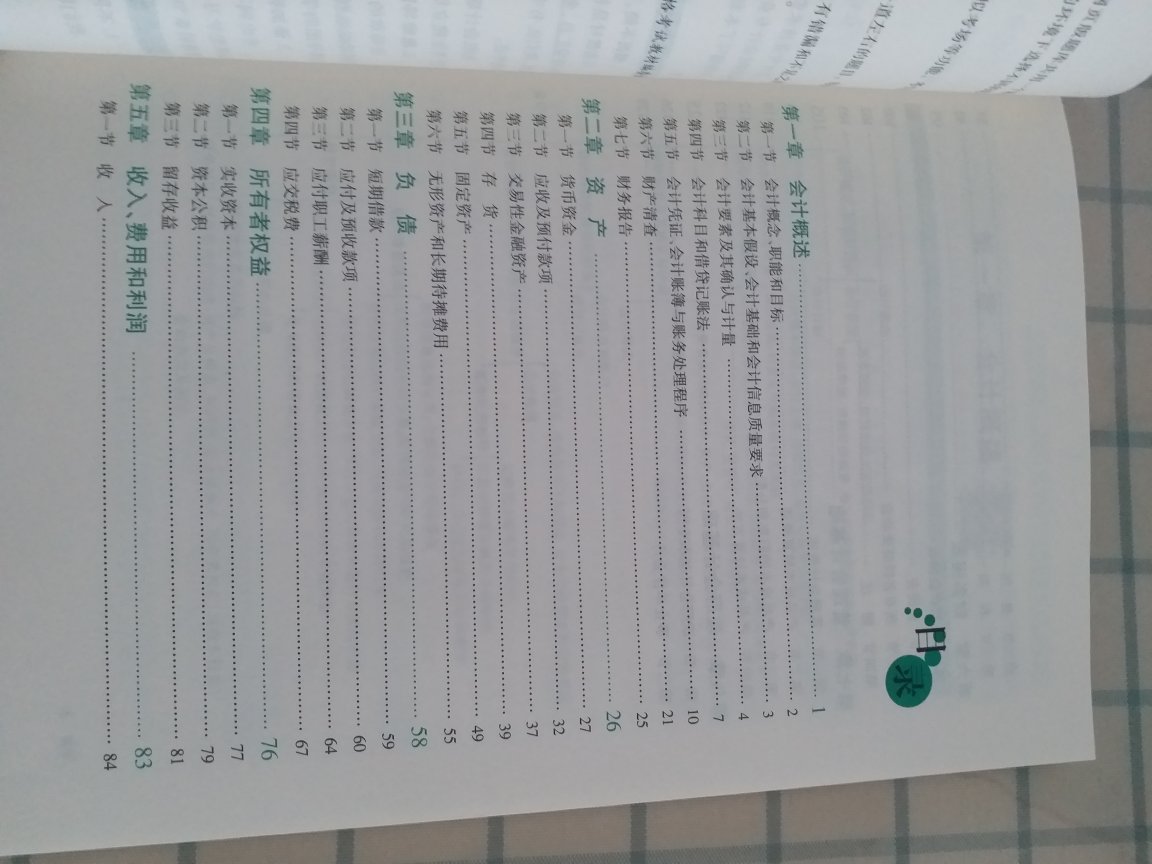 目录
第一章 会计概述 1
第一节 会计概念、职能和目标 2
第二节 会计基本假设、会计基础和会计信息质量要求 3
第三节 会计要素及其确认与计量 4
第四节 会计科目和借贷记账法 7
第五节 会计凭证、会计账簿与账务处理程序 10
第六节 财产清查 21
第七节 财务报告 25
第二章 资产 26
第一节 货币资金 27
第二节 应收及预付款项 32
第三节 交易性金融资产 37
第四节 存货 39
第五节 固定资产 49
第六节 无形资产和长期待摊费用 55
第三章 负债 58
第一节 短期借款 59
第二节 应付及预收款项 60
第三节 应付职工薪酬 64
第四节 应交税费 67
第四章 所有者权益 76
第一节 实收资本 77
第二节 资本公积 79
第三节 留存收益 81
第五章 收入、费用和利润 83
第一节 收入 84